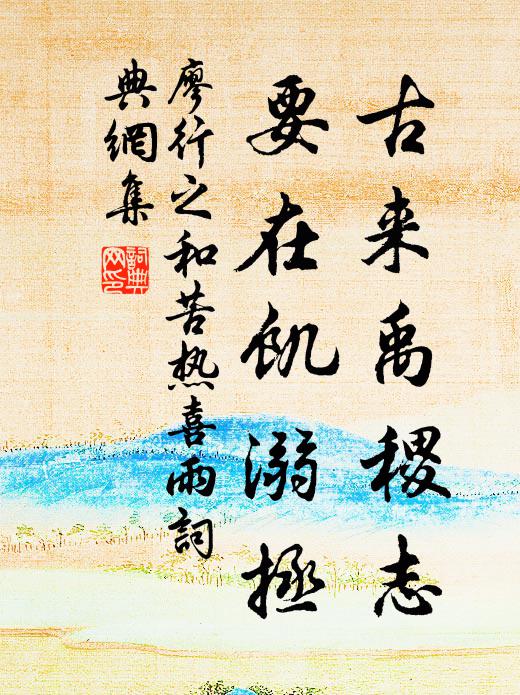 古来禹稷志
要在飢溺拯
廖行之和苦热喜雨詞
典網集
詞典网印